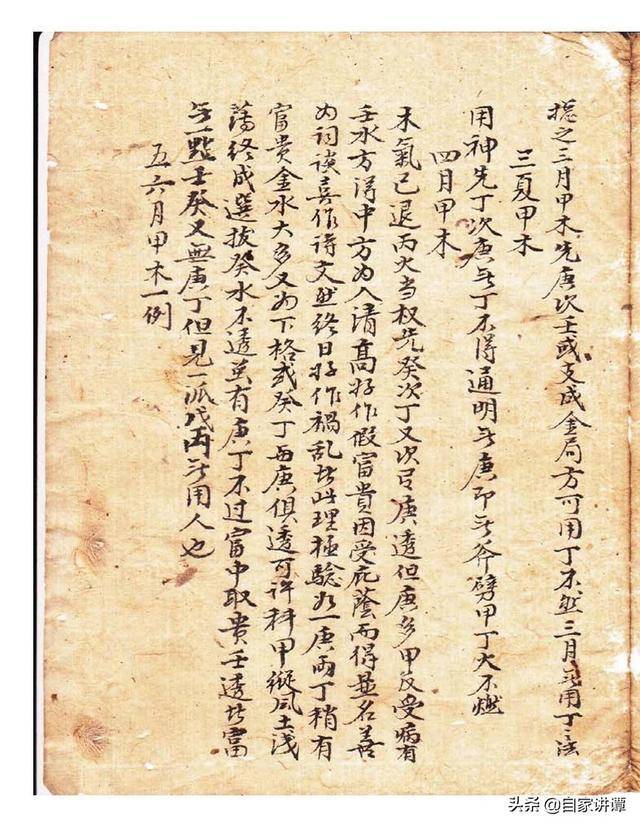 捴之三月甲木先庚次壬或支成金局方可用丁不然三月无用丁之法
三夏甲木
用神先丁次庚无丁不得通明无庚即无斧劈甲丁火不燃
四月甲木
木氣已退丙火当权先癸次丁又次庚透但庚多甲反受病有
壬水方得中方为人清髙好作假富貴因受庇蔭而得显名善
为词谈喜作诗文然终日好作禍乱者此理極驗为一庚両丁稍有
富貴金水太多又为下格或癸丁両庚俱透可許科甲縱風土浅
荡终成選拔癸水不透莫有庚丁不过富中取貴壬透者富
无一點壬癸又無庚丁但見一派戊丙无用人也
五六月甲木一例
头条 @自家讲谭